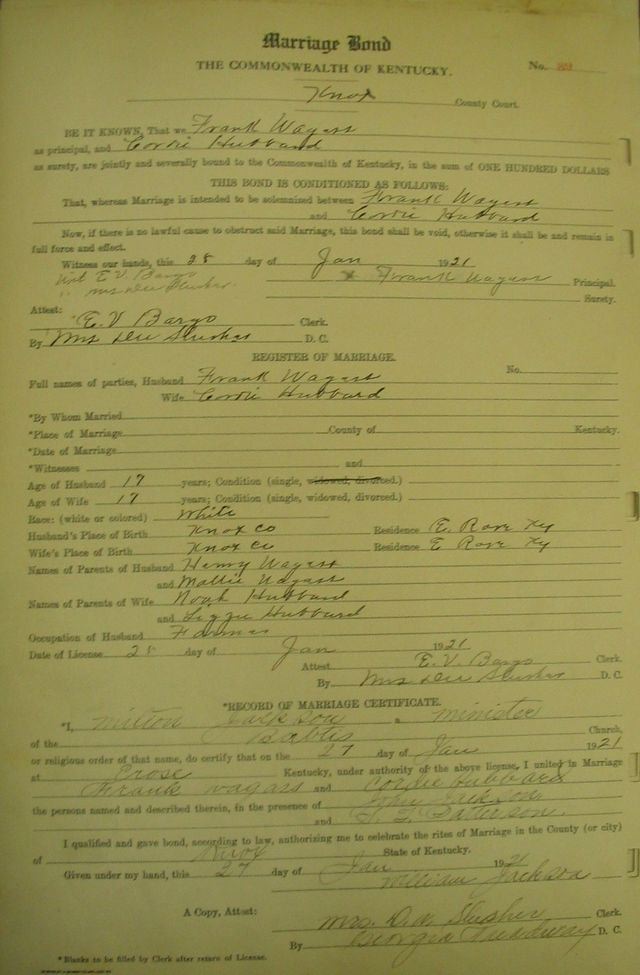 Marriage Bond
THE COMMONWEALTH OF KENTUCKY. No. 89
Knox County Court.
BE IT KNOWN, That we Frank Wagast
as principal, and Cordie Hubbard
as surety, are jointly and severally bound to the Commonwealth of Kentucky, in the sum of ONE HUNDRED DOLLARS
THIS BOND IS CONDITIONED AS FOLLOWS:
That, whereas Marriage is intended to be solemnized between Frank Wagast
and Cordie Hubbard
Now, if there is no lawful cause to obstruct said Marriage, this bond shall be void, otherwise it shall be and remain in
full force and effect.
Witness our hands, this 28 day of Jan 1921
Wit E V Bargo x Frank Wagast Principal.
" Mrs Dee Slusher Surety.
Attest:
E. V Bargo Clerk.
By Mrs Dee Slusher D. C.
REGISTER OF MARRIAGE.
Full names of parties, Husband Frank Wagast No.
Wife Cordie Hubbard
*By Whom Married
*Place of Marriage County of Kentucky.
*Date of Marriage
*Witnesses and
Age of Husband 17 years; Condition (single, widowed, divorced.)
Age of Wife 17 years; Condition (single, widowed, divorced.)
Race: (white or colored) White
Husband's Place of Birth Knox Co Residence E. Rose Ky
Wife's Place of Birth Knox Co Residence E Rose Ky
Names of Parents of Husband Henry Wagast
and Mollie Wagast
Names of Parents of Wife Noah Hubbard
and Lizzie Hubbard
Occupation of Husband Farmer
Date of License 28 day of Jan 1921
Attest. E. V. Bargo Clerk.
By Mrs Dee Slusher D. C.
*RECORD OF MARRIAGE CERTIFICATE.
*I, Milton Jackson a minister
of the Babtis Church,
or religious order of that name, do certify that on the 27 day of Jan 1921
at Erose Kentucky, under authority of the above license, I united in Marriage
Frank Wagars and Cordie Hubbard
the persons named and described therein, in the presence of John Jackson
and Patterson.
I qualified and gave bond, according to law, authorizing me to celebrate the rites of Marriage in the County (or city)
of Knox State of Kentucky.
Given under my hand, this 27 day of Jan 1921
William Jackson
A Copy, Attest: Mrs. D. W. Slusher Clerk.
By Georgia Treadway D. C.
*Blanks to be filled by Clerk after return of License.